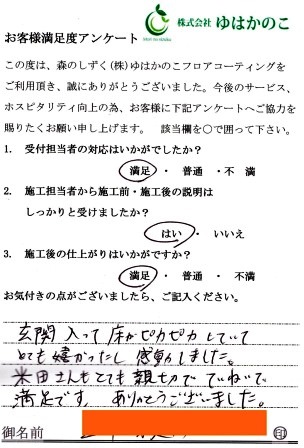 株式会社 ゆはかのこ
お客様満足度アンケート
この度は、森のしずく(株)ゆはかのこフロアコーティングを
ご利用頂き、誠にありがとうございました。今後のサービス、
ホスピタリティ向上の為、お客様に下記アンケートへご協力を
賜りたくお願い申し上げます。 該当欄を〇で囲って下さい。
1. 受付担当者の対応はいかがでしたか?
満足 ・ 普通 ・不 満
2. 施工担当者から施工前・施工後の説明は
しっかりと受けましたか?
はい ・ いいえ
3. 施工後の仕上がりはいかがですか?
満足 ・ 普通 ・ 不満
お気付きの点がございましたら、ご記入ください。
玄関入って床がピカピカしていて
とても嬉かったし感動しました。
米田さんもとても親切でていねいで
満足です。ありがとうございました。
御名前 印